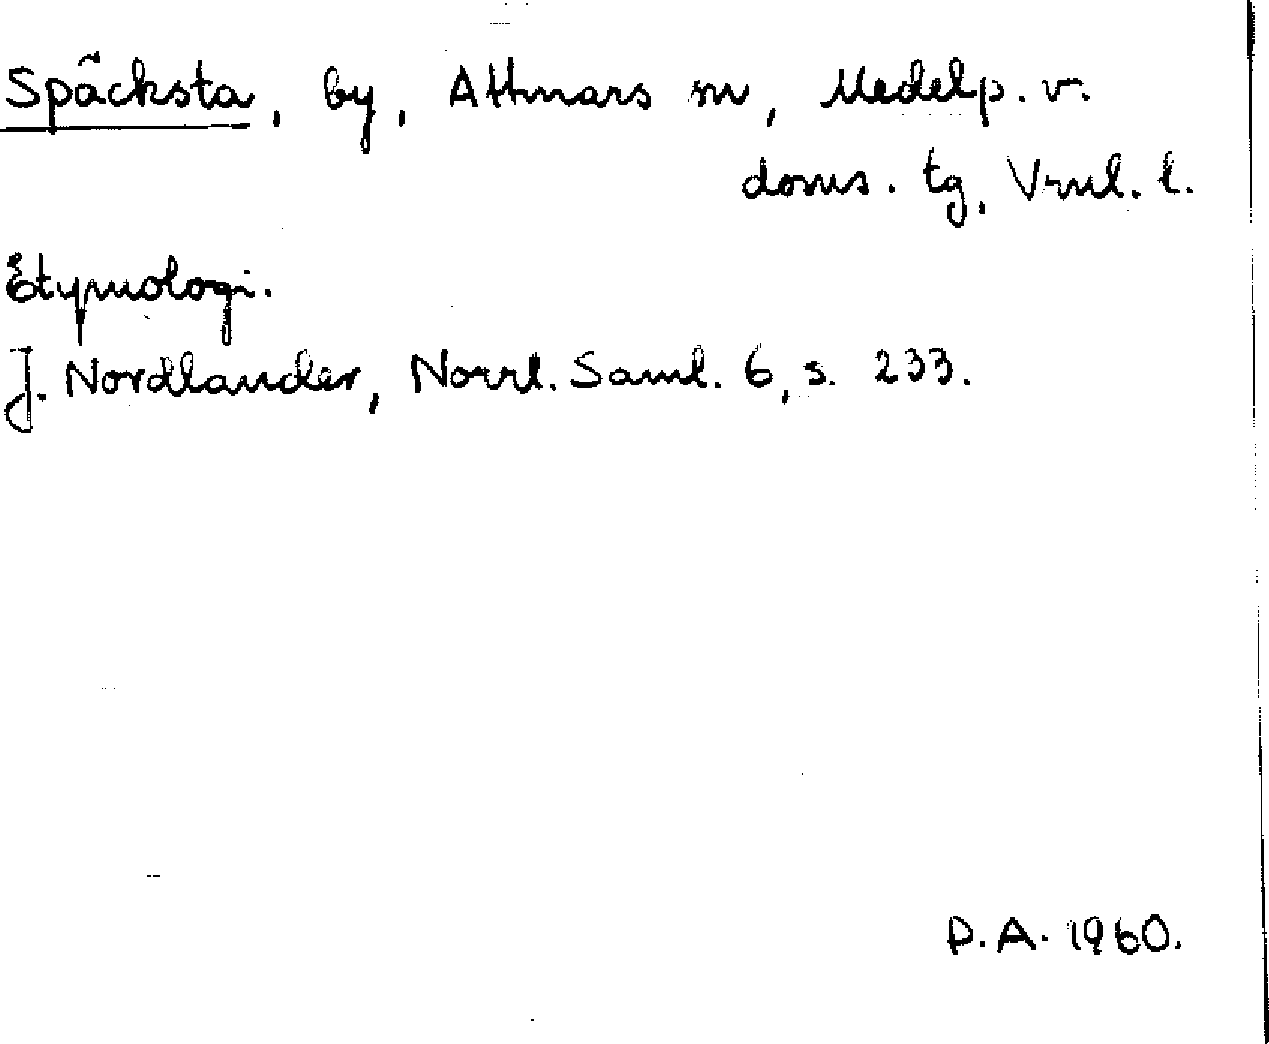 Späcksta, by, Attmars sn, Medelp. v.
doms. tg, Vrnl. l.
Etymologi.
J. Nordlander, Norrl. Saml. 6, s. 233.
P.A. 1960.